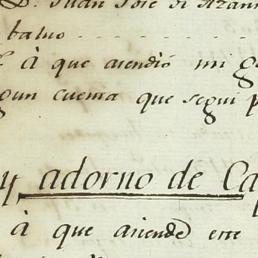 D. Juan José di Azan
balvo
à que acendió mi g
gun cuenta que segui p
y adorno de Ca
à que aciende este